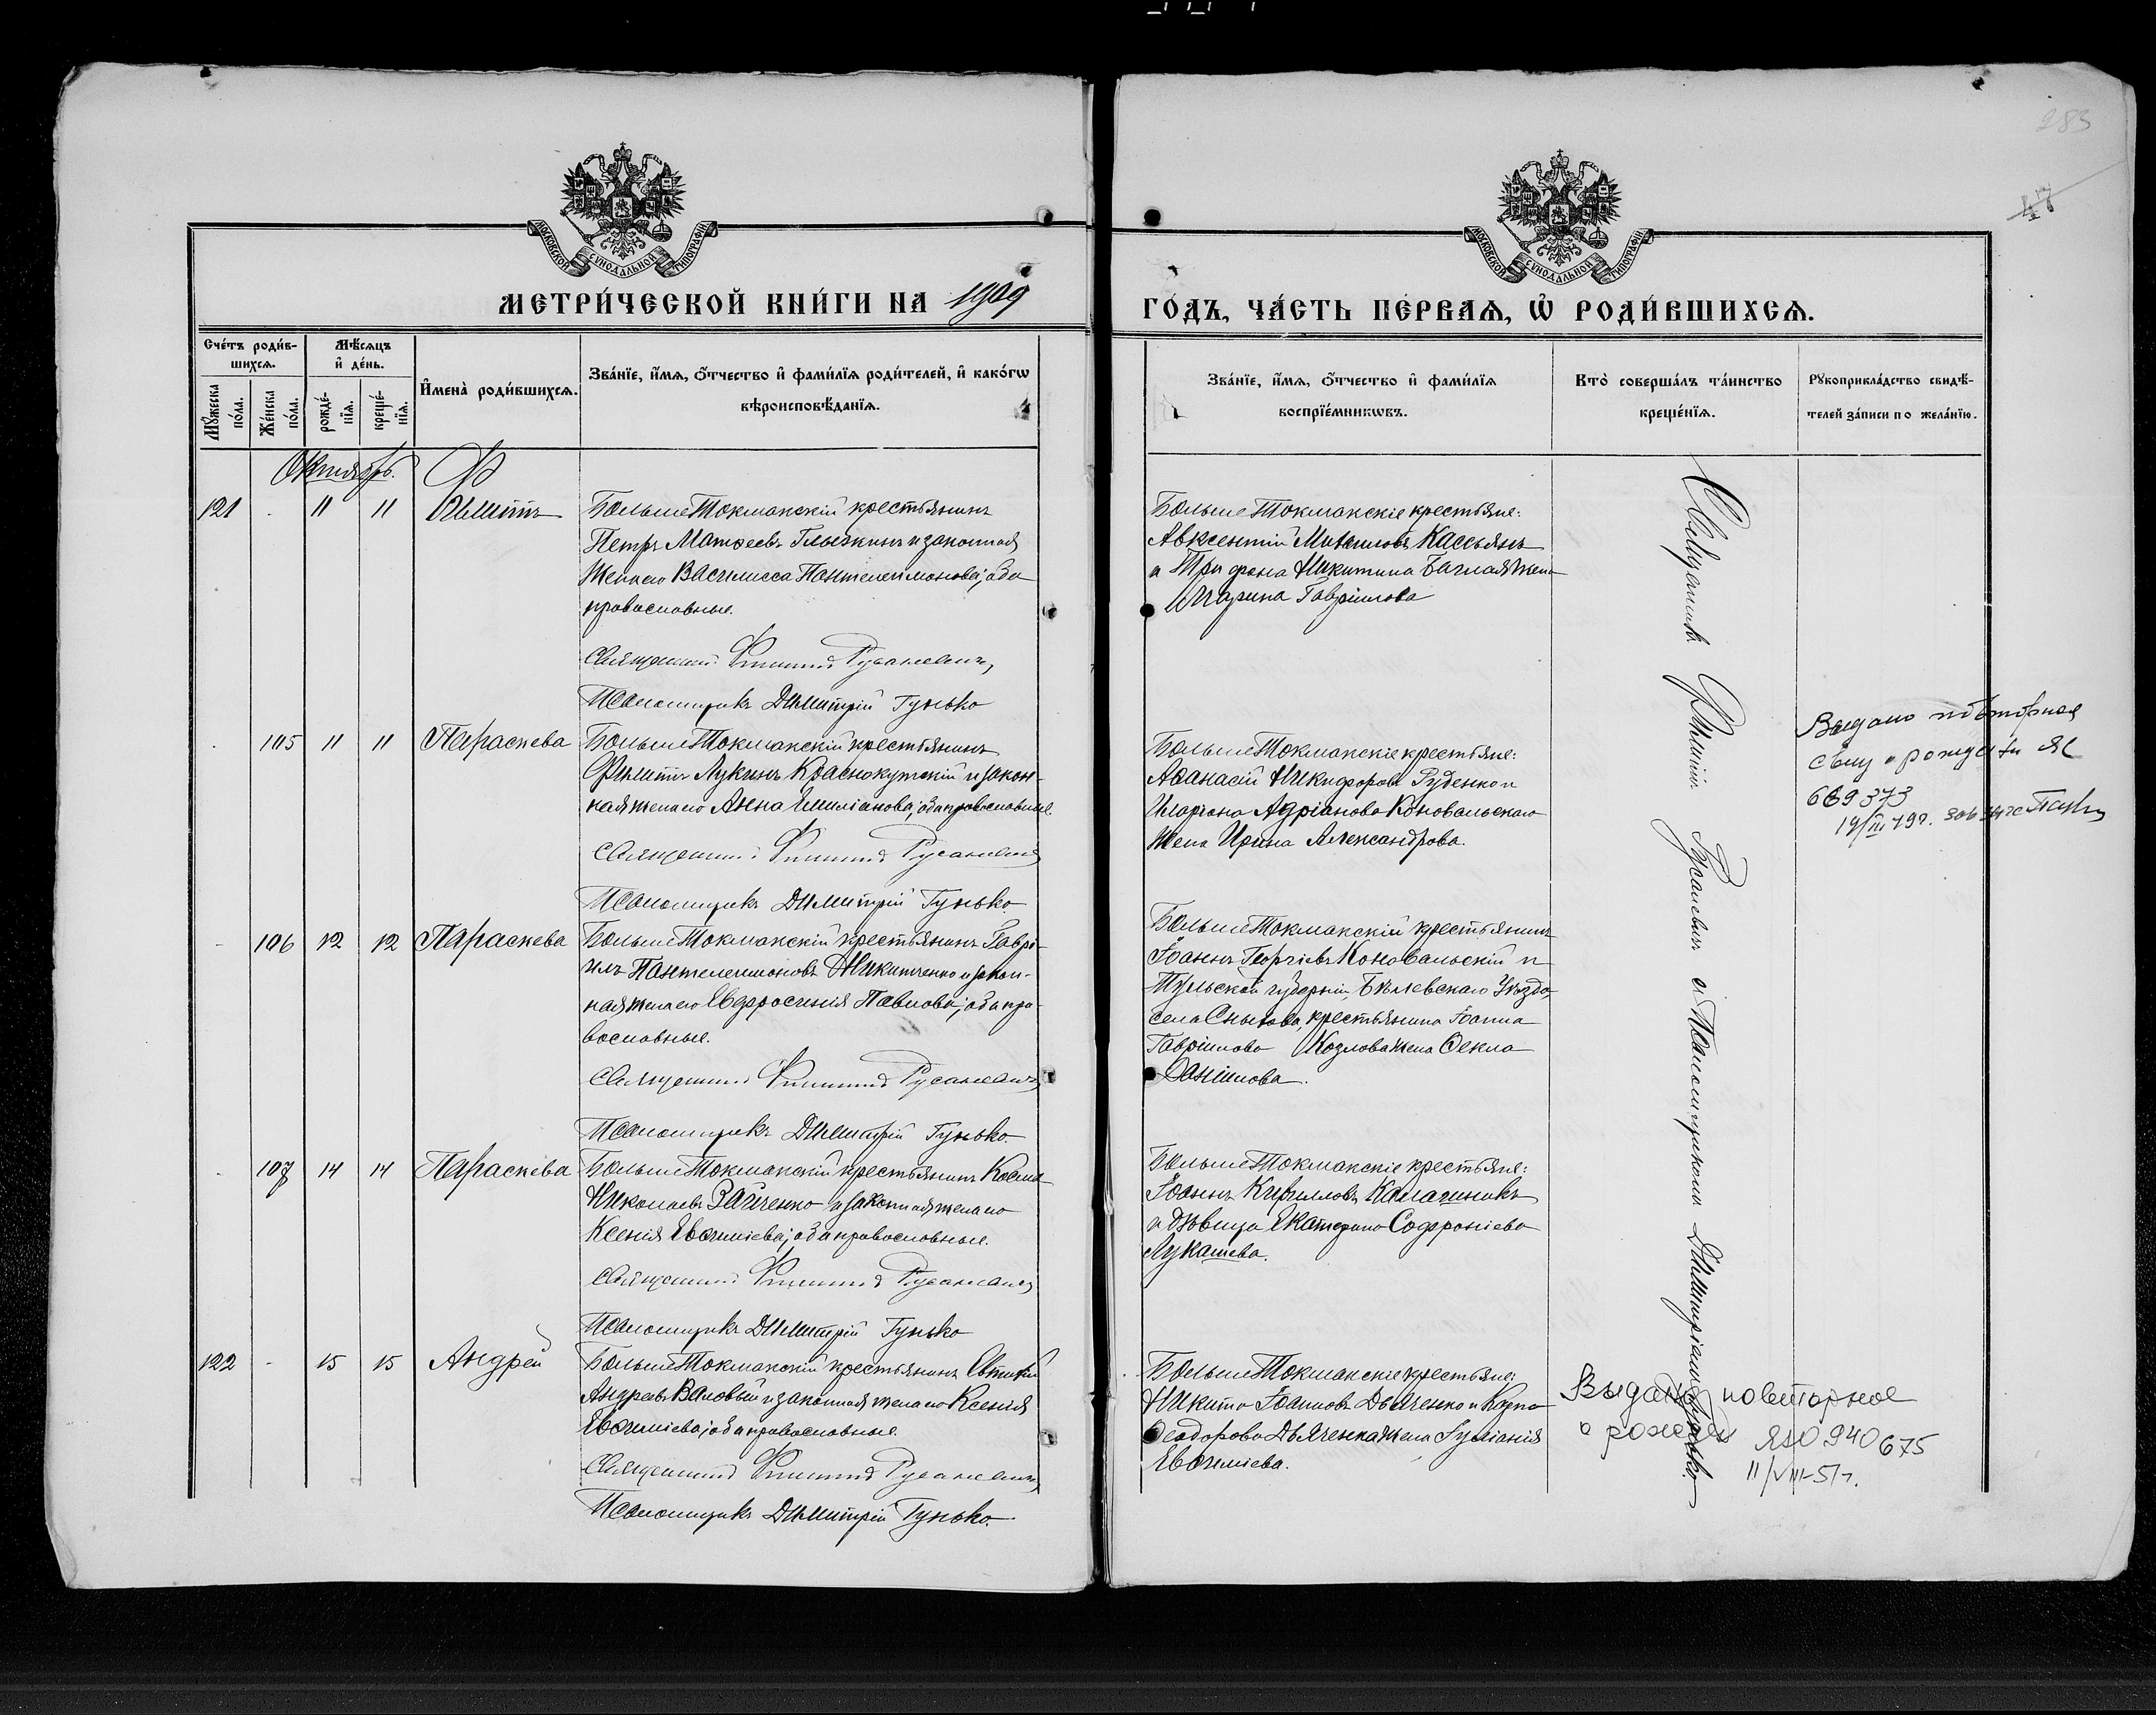 283
47
МОСКОВСКОЙ СѴНОДАЛЬНОЙ ТИПОГРАФІИ
МОСКОВСКОЙ СѴНОДАЛЬНОЙ ТИПОГРАФІИ
МЕТРИ́ЧЕСКОЙ КНИ́ГИ НА 1909
ГО́ДЪ, ЧА́СТЬ ПЕ́РВАѦ, Ѡ҆ РОДИ́ВШИХСѦ.
Сче́тъ роди́в-
шихсѧ.
Мꙋ́жеска
по́ла.
Же́нска
по́ла.
Мѣ́сѧцъ
и҆ де́нь.
рожде́-
нїѧ.
креще́-
нїѧ.
И҆мена̀ роди́вшихсѧ.
Зва́нїе, и҆́мѧ, ѻ҆́тчество и҆ фами́лїѧ роди́телей, и҆ како́гѡ
вѣроисповѣ́данїѧ.
Зва́нїе, и҆́мѧ, ѻ҆́тчество и҆ фами́лїѧ
воспрїе́мникѡвъ.
Кто̀ соверша́лъ та́инство
креще́нїѧ.
Рꙋкоприкла́дство свидѣ́-
телей за́писи по жела́нїю.
Октябрь.
121 11 11 Филиппъ
БольшеТокмакскій крестьянинъ
Петръ Матѳеевъ Глызкинъ и законная
жена его Василисса Пантелеимонова; оба
православные.
Священникъ Филиппъ Русаневичъ,
Псаломщикъ Димитрій Гунько
БольшеТокмакскіе крестьяне:
Авксентій Михаиловъ Кассьянъ
и Трифона Никитина Баглая жена
Марина Гавріилова
105 11 11 Параскева
БольшеТокмакскій крестьянинъ
Филиппъ Лукинъ Краснокутскій и закон-
ная жена его Анна Емиліанова; оба православные.
Священникъ Филиппъ Русаневичъ
Псаломщикъ Димитрій Гунько.
БольшеТокмакскіе крестьяне:
Аѳанасій Никифоровъ Руденко и
Иларіона Адріанова Коновальскаго
жена Ирина Александрова.
Выдано повторное
св-му о рожден ЯС
669373
19/III 79г.
106 12 12 Параскева
БольшеТокмакскій крестьянинъ Гаврі-
илъ Пантелеимоновъ Никитченко и закон-
ная жена его Евфросинія Павлова; оба пра-
вославные.
Священникъ Филиппъ Русаневичъ
Псаломщикъ Димитрій Гунько.
БольшеТокмакскій крестьянинъ
Іоаннъ Георгіевъ Коновальскій и
Тульской губерніи, Бѣлевскаго Уѣзда,
села Сныхова, крестьянина Іоанна
Гавріилова Козлова жена Ѳекла
Даніилова.
107 14 14 Параскева
БольшеТокмакскій крестьянинъ Косма
Николаевъ Зайченко и законная жена его
Ксенія Евѳиміева; оба православные.
Священникъ Филиппъ Русаневичъ
Псаломщикъ Димитрій Гунько
БольшеТокмакскіе крестьяне:
Іоаннъ Кирилловъ Калашникъ
и дѣвица Екатерина Софроніева
Лукашева.
122 15 15 Андрей
БольшеТокмакскій крестьянинъ Евтихій
Андреевъ Валовый и законная жена его Ксенія
Евѳиміева; оба православные.
Священникъ Филиппъ Русаневичъ
Псаломщикъ Димитрій Гунько.
БольшеТокмакскіе крестьяне:
Никита Іоанновъ Дьяченко и Карпа
Ѳеодорова Дьяченка жена Іуліанія
Евѳиміева.
Священникъ Филиппъ Русаневичъ съ Псаломщикомъ Димитріемъ Гунько.
Выдано повторное
о рожден ЯЮ 940675
11/VIII-51г.